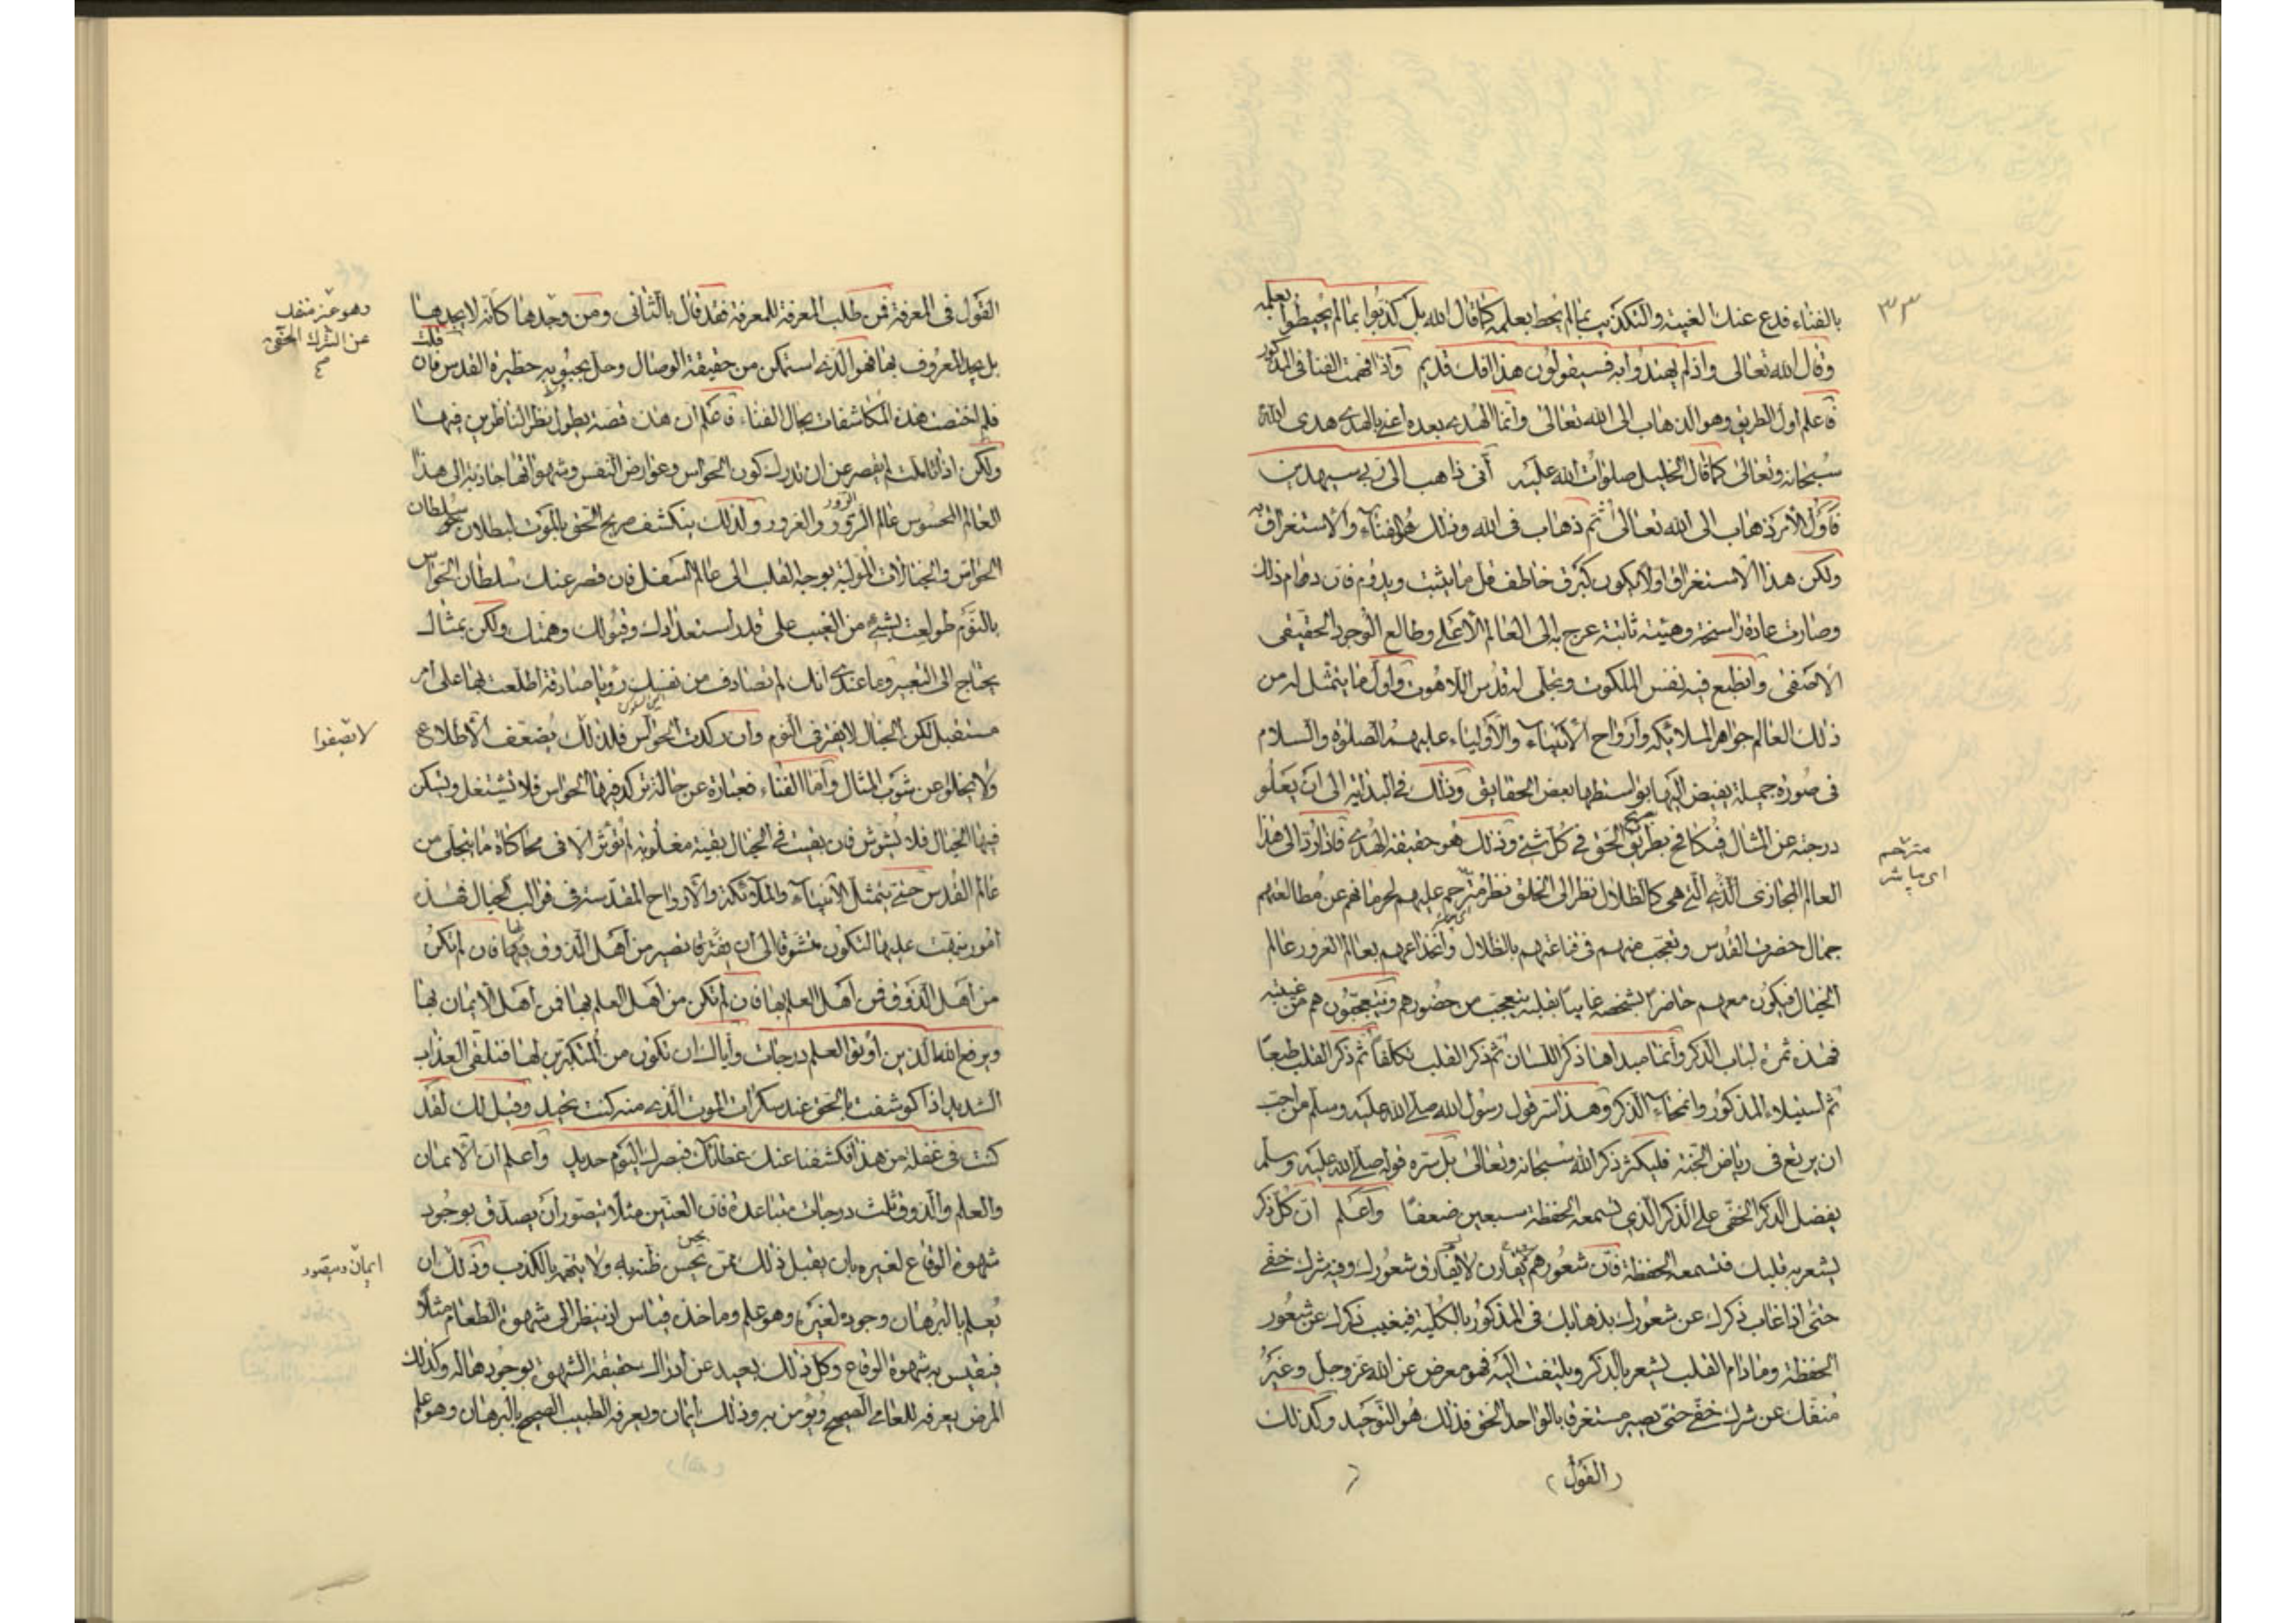 ٣٣
بالفناء فدع عنك الغيبة والتكذيب بما لم يحط بعلمه كما قال الله بل كذبوا بما لم يحيطوا بعلمه
وقال الله تعالى واذ لم يهتدوا به فسيقولون هذا افك قديم واذا فهمت الفنا فى المذكور
فاعلم اول الطريق وهو الذهاب الى الله تعالى وانما الهدى بعده اعنى بالهدى هدى الله
سبحانه وتعالى كما قال الخليل صلوات الله عليه انى ذاهب الى ربى سيهدين
فاول الامر ذهاب الى الله تعالى ثم ذهاب فى الله وذلك هو الفناء والاستغراق به
ولكن هذا الاستغراق اولا يكون كبرق خاطف قل ما يثبت ويدوم فان دام ذلك
وصارت عادة راسخة وهيئة ثابتة عرج به الى العالم الاعلى وطالع الوجود الحقيقى
الاصفى وانطبع فيه نفس الملكوت وتجلى له قدس اللاهوت واول ما يتمثل له من
ذلك العالم جواهر الملائكة وارواح الانبياء والاولياء عليهم الصلوة والسلام
فى صورة جميلة يفيض اليه بواسطتها بعض الحقايق وذلك فى البداية الى ان يعلو
درجته عن المثال فيكافح بطريق الحق فى كل شئ وذلك هو حقيقة الهدى فاذا رد الى هذا
العالم المجازى الذى هى كالظلال نظر الى الخلق نظر مترحم عليهم لحرمانهم عن مطالعتهم
جمال حضرت القدس وتعجب منهم فى قناعتهم بالظلال وانخداعهم بعالم الغرور عالم
الخيال فيكون معهم حاضرا بشخصه غايبا بقلبه يتعجب من حضورهم ويتعجبون هم من غيبته
فهذه ثمرة لباب الذكر وانما مبداها ذكر اللسان ثم ذكر القلب تكلفا ثم ذكر القلب طبعا
ثم استيلاء المذكور وانمحاء الذكر وهذا سر قول رسول الله صلى الله عليه وسلم من احب
ان يرتع فى رياض الجنة فليكثر ذكر الله سبحانه وتعالى بل سره قوله صلى الله عليه وسلم
يفضل الذكر الخفى على الذكر الذى تسمعه الحفظة سبعين ضعفا واعلم ان كل ذكر
يشعر به قلبك فتسمعه الحفظة فان شعورهم يقارن لا يفارق شعورك وفيه شرك خفى
حتى اذا غاب ذكرك عن شعورك بذهابك فى المذكور بالكلية فيغيب ذكرك عن شعور
الحفظة وما دام القلب يشعر بالذكر ويلتفت اليه فهو معرض عن الله عز وجل وغير
منفك عن شرك خفى حتى يصير مستغرقا بالواحد الحق فذلك هو التوحيد وكذلك
(القول)
مترحم
اى مباشر
القول فى المعرفة فمن طلب المعرفة للمعرفة فقد قال بالثانى ومن وجدها كانه لا يجدها
بل يجد المعروف بها فهو الذى استمكن من حقيقة الوصال وحل بحبوبير حظيرة القدس فان قلت
فلم اختصت هذه المكاشفات بحال الفناء فاعلم ان هذه قصة يطول نظر الناظرين فيها
ولكن اذا تاملت لم يقصر عن ان تدرك كون الحواس وعوارض النفس وشهواتها جاذبة الى هذا
العالم المحسوس عالم الزور والغرور ولذلك ينكشف صريح الحق بالموت لبطلان سلطان
الحواس والخيالات المولية بوجه القلب الى عالم السفل فان قصر عنك سلطان الحواس
بالنوم طولعت بشئ من الغيب على قدر استعدادك وقبولك وهمتك ولكن بمثال
يحتاج الى التعبير وما عندى انك لم تصادف من نفسك رؤيا صادقة اطلعت بها على امر
مستقبل لكن الخيال لا يفتر فى النوم وان ركدت الحواس فلذلك يضعف الاطلاع
ولا يخلو عن شوب المثال واما الفناء فعبارة عن حالة تركد فيها الحواس فلا تشتغل ويسكن
فيها الخيال فلا يشوش فان بقيت فى الخيال بقية مغلوبة لم تؤثر الا فى محاكاة ما يتجلى من
عالم القدس حتى يتمثل الانبياء والملائكة والارواح المقدسة فى قوالب الخيال فهذه
امور نبهت عليها لتكون متشوقا الى ان تصير من اهل الذوق فيها فان لم تكن
من اهل الذوق فمن اهل العلم بها فان لم تكن من اهل العلم بها فمن اهل الايمان بها
ويرفع الله الذين اوتوا العلم درجات واياك ان تكون من المنكرين لها فتلقى العذاب
الشديد اذا كوشفت بالحق عند سكرات الموت الذى منه كنت تحيد وقيل لك لقد
كنت فى غفلة من هذا فكشفنا عنك غطائك فبصرك اليوم حديد واعلم ان الايمان
والعلم والذوق ثلث درجات متباعدة فان العنين مثلا يتصور ان يصدق بوجود
شهوة الوقاع لغيره بان يقبل ذلك ممن يحسن ظنه به ولا يتهم بالكذب وذلك ان
يعلم بالبرهان وجوده لغيره وهو علم وماخذه قياس اذ ينظر الى شهوة الطعام مثلا
فيقيس به شهوة الوقاع وكل ذلك بعيد عن ادراك حقيقة الشهوة بوجودها له وكذلك
المرض يعرفه العامى الصحيح ويؤمن به وذلك ايمان ويعرفه الطبيب الصحيح بالبرهان وهو علم
وهو غير منفك
عن الشرك الخفى
لا تصفوا
ايمان